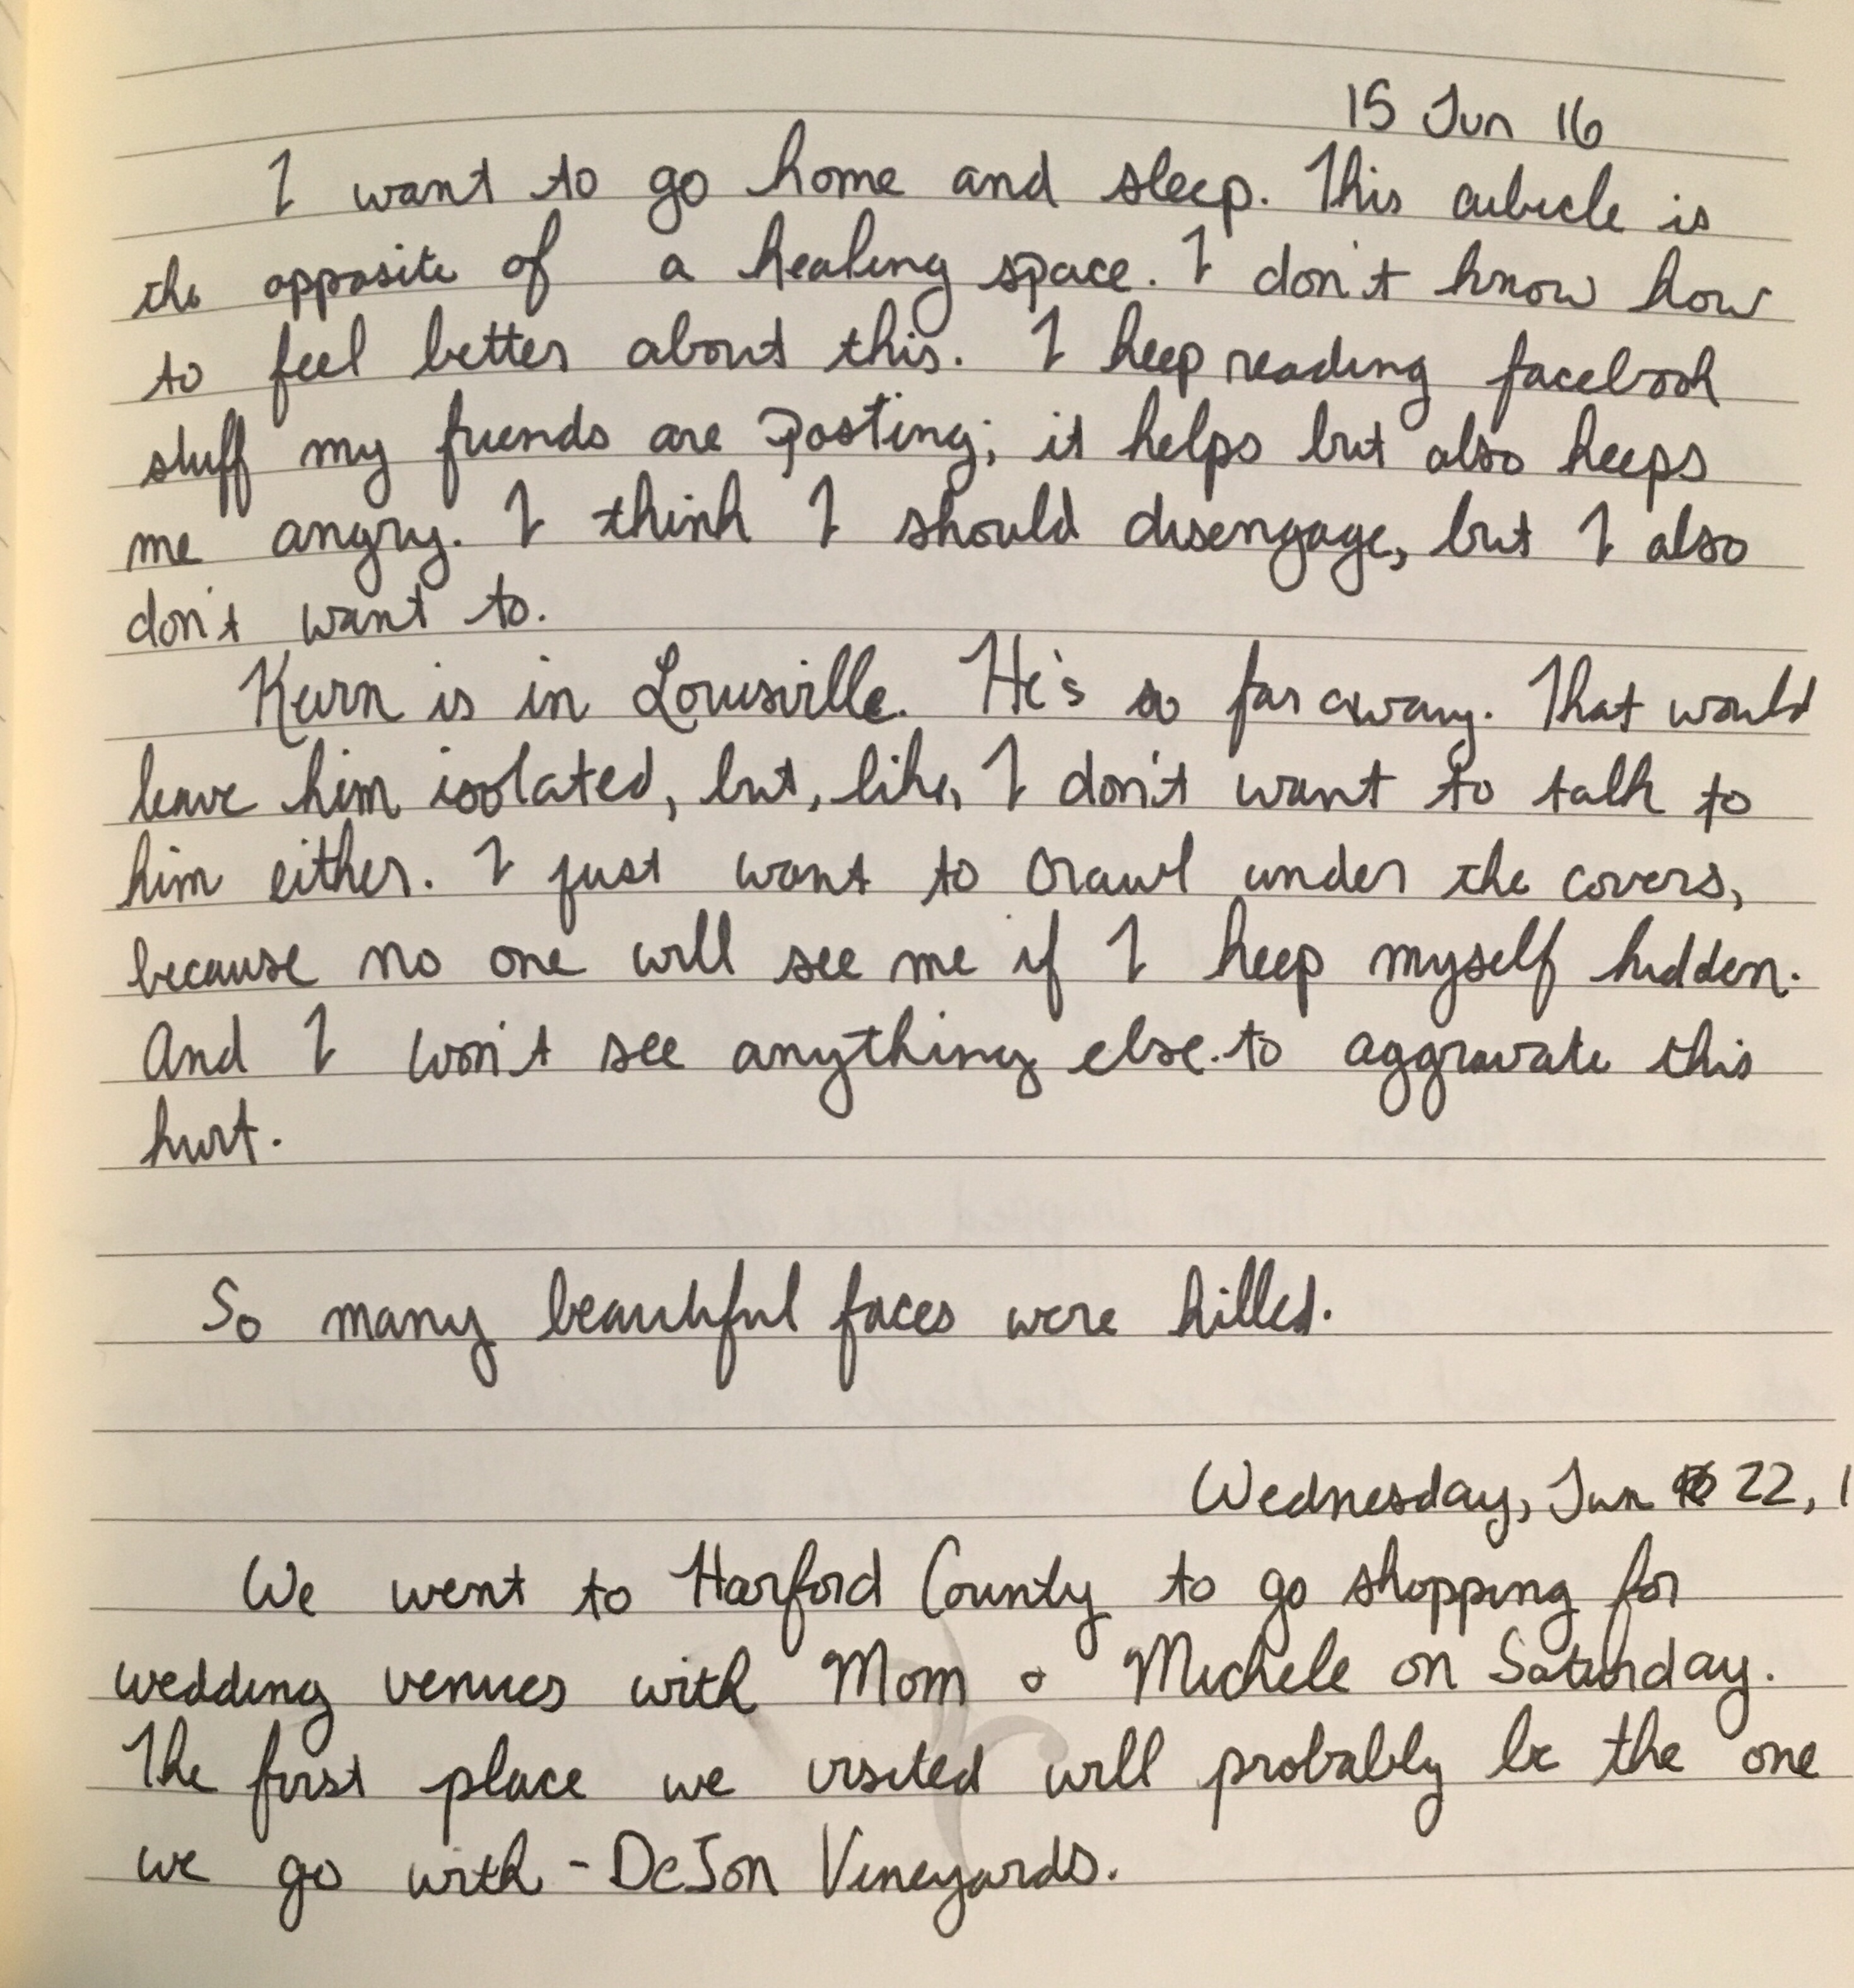 15 Jun 16
I want to go home and sleep. This cubicle is
the opposite of a healing space. I don't know how
to feel better about this. I keep reading facebook
stuff my friends are posting; it helps but also keeps
me angry. I think I should disengage, but I also
don't want to.
is in Louisville. He's so far away. That would
leave him isolated, but, like, I don't want to talk to
him either. I just want to crawl under the covers,
because no one will see me if I keep myself hidden.
And I won't see anything else to aggravate this
hurt.
So many beautiful faces were killed.
Wednesday, Jun 22, 1
We went to Harford County to go shopping for
wedding venues with Mom & Michele on Saturday.
The first place we visited will probably be the one
we go with - DeJon Vineyards.